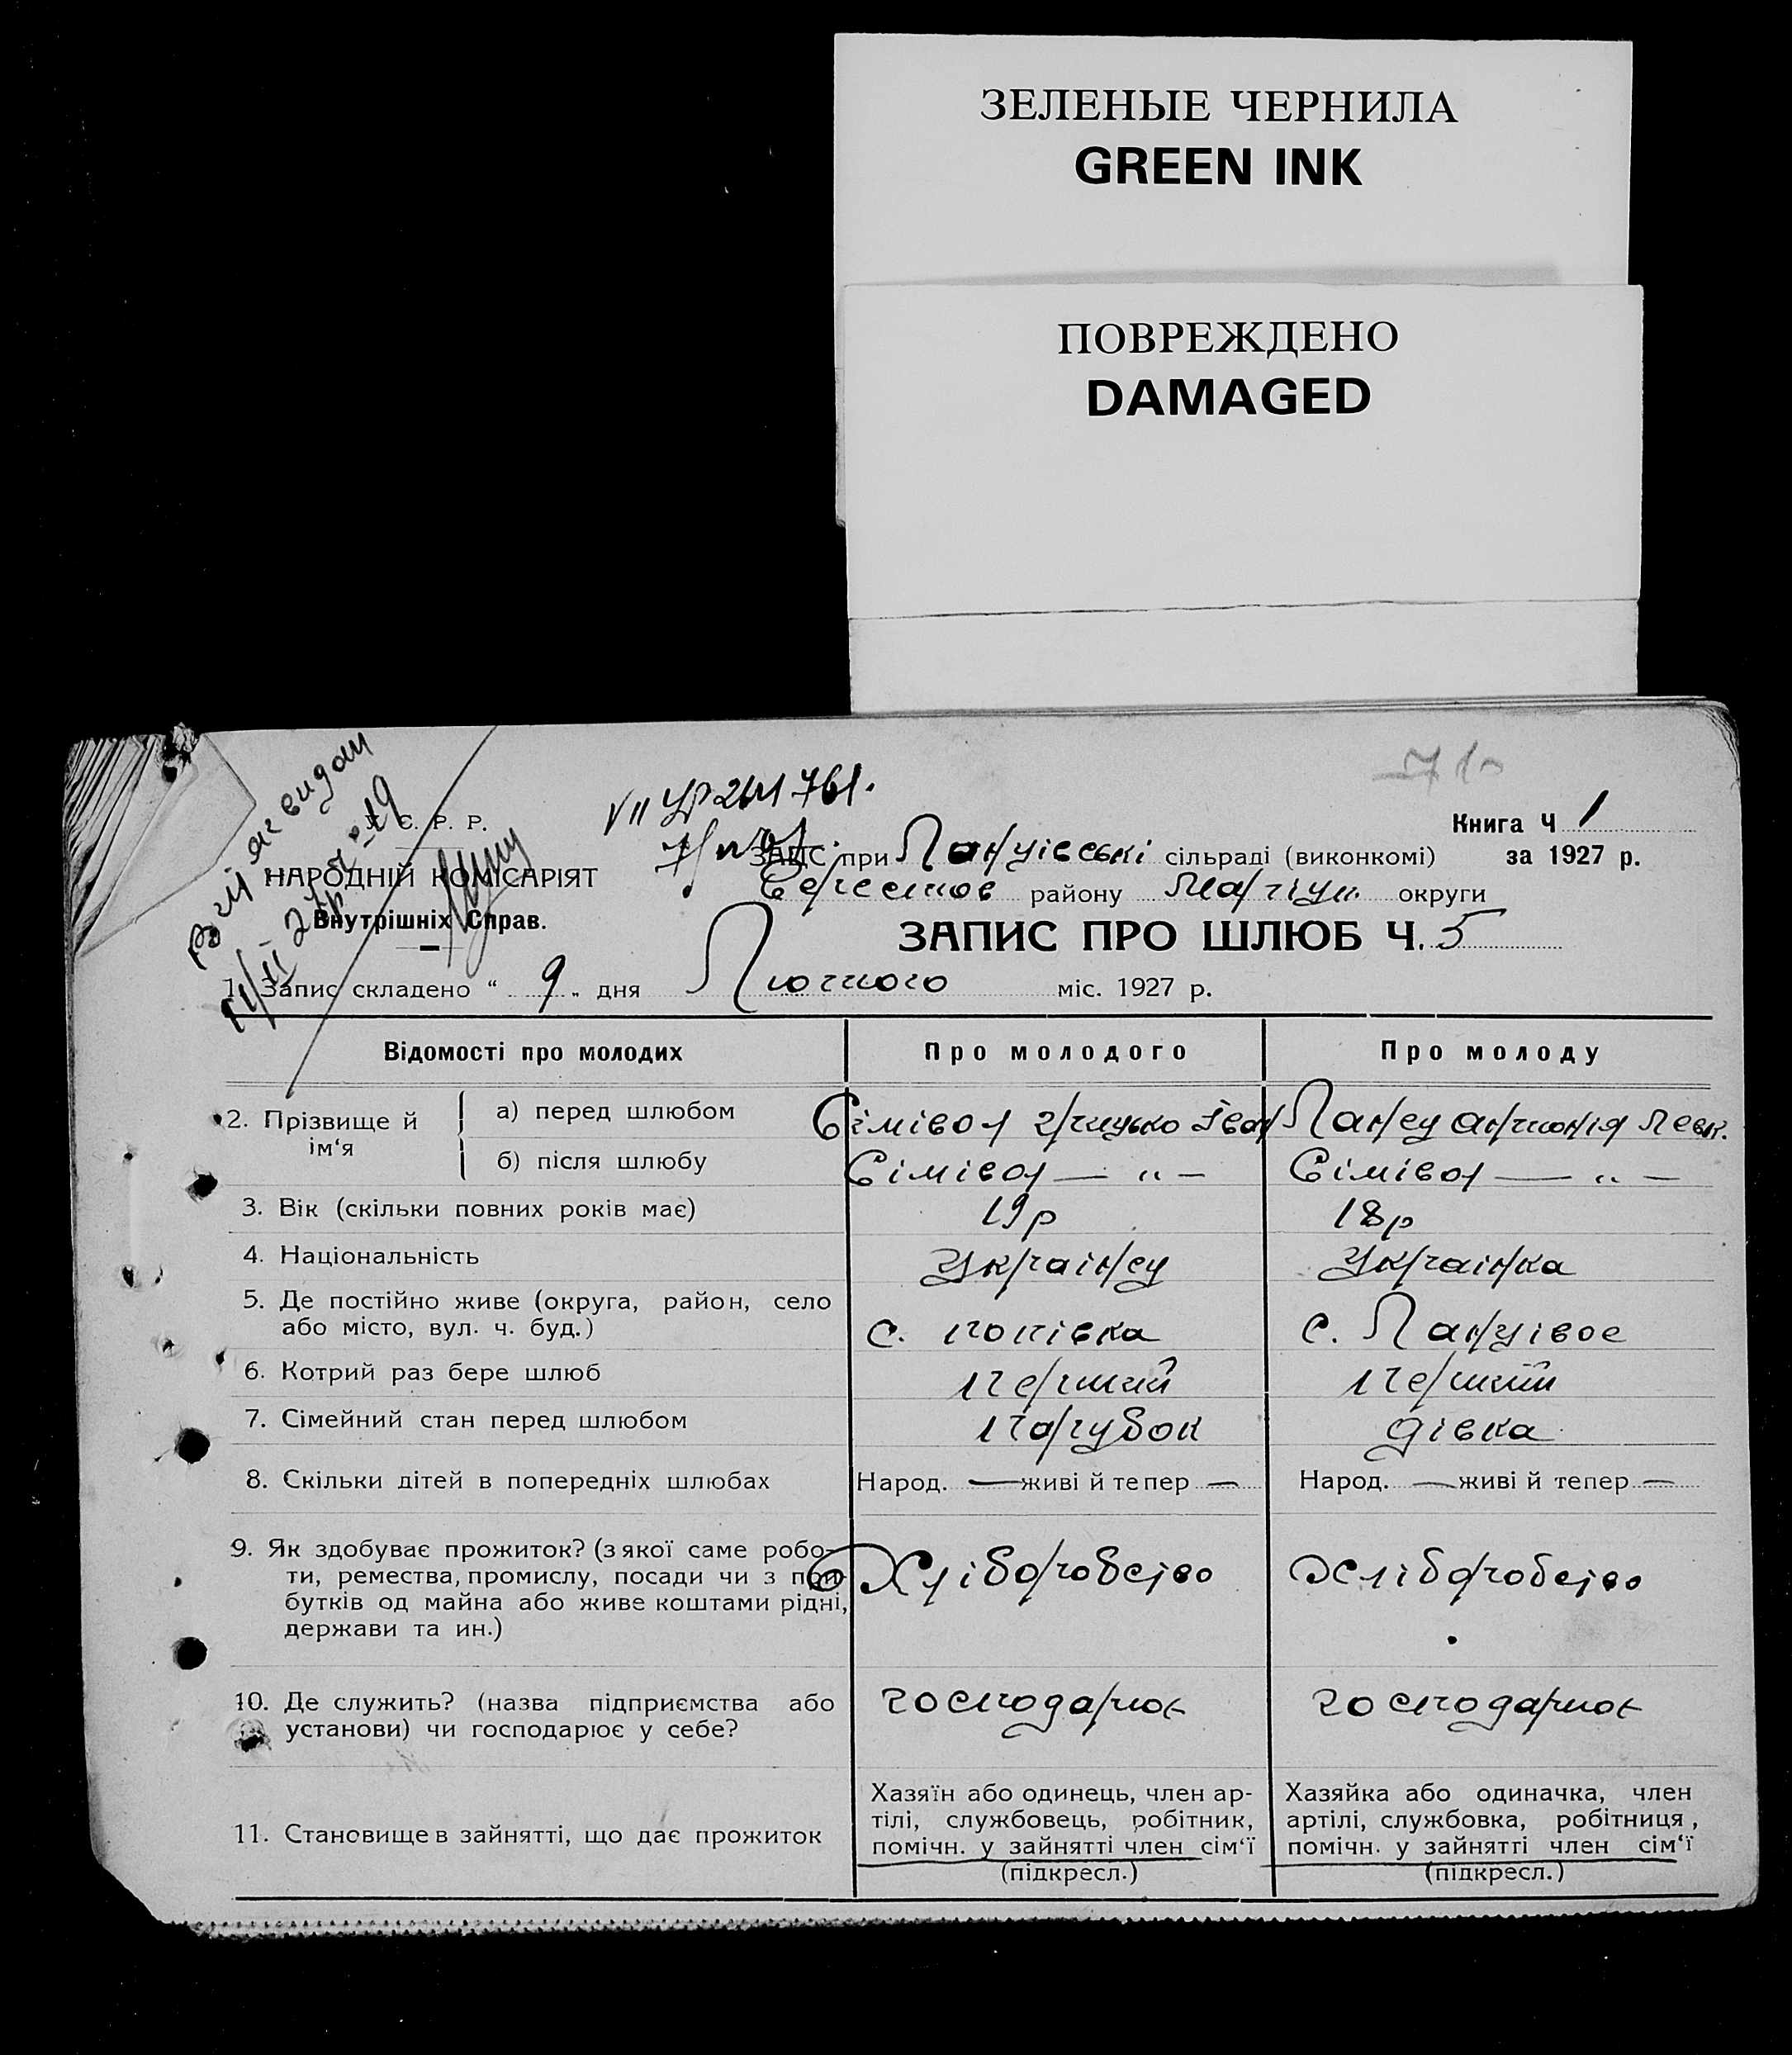 ЗЕЛЕНЫЕ ЧЕРНИЛА
GREEN INK
ПОВРЕЖДЕНО
DAMAGED
Книга Ч 1
У. С. Р. Р.
ЗАГС при Ланцівські сільраді (виконкомі) за 1927 р.
НАРОДНІЙ КОМІСАРІЯТ
району округи
Внутрішніх Справ.
ЗАПИС ПРО ШЛЮБ Ч. 5
1. Запис складено “ 9 „ дня Лютого міс. 1927 р.
Відомості про молодих Про молодого Про молоду
2. Прізвище й ім‘я
а) перед шлюбом Сімівол Грицько Іван Ланец Антонія Левк.
б) після шлюбу Сімівол — „ — Сімівол — „ —
3. Вік (скільки повних років має) 19 р 18 р
4. Національність Українец Українка
5. Де постійно живе (округа, район, село
або місто, вул. ч. буд.) с. попівка с.
6. Котрий раз бере шлюб перший перший
7. Сімейний стан перед шлюбом парубок дівка
8. Скільки дітей в попередніх шлюбах Народ. — живі й тепер — Народ. — живі й тепер —
9. Як здобуває прожиток? (з якої саме робо-
ти, ремества, промислу, посади чи з при-
бутків од майна або живе коштами рідні,
держави та ин.)
Хліборобство Хліборобство
10. Де служить? (назва підприємства або
установи) чи господарює у себе?
господарює господарює
11. Становище в зайнятті, що дає прожиток
Хазяїн або одинець, член ар-
тілі, службовець, робітник,
помічн. у зайнятті член сім‘ї
(підкресл.)
Хазяйка або одиначка, член
артілі, службовка, робітниця,
помічн. у зайнятті член сім‘ї
(підкресл.)